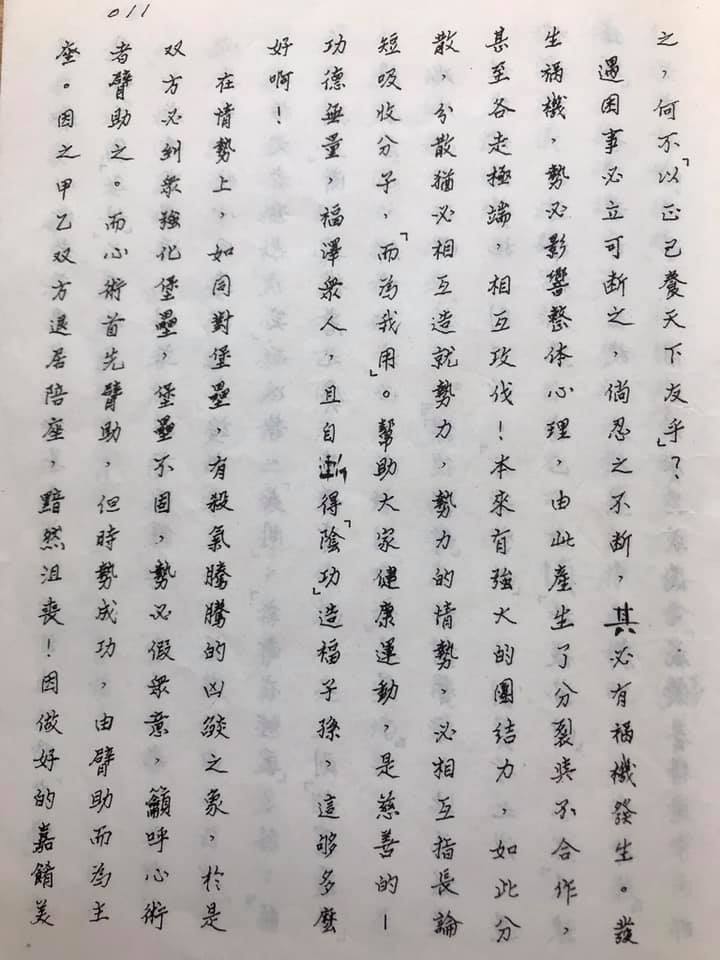 011
之，何不「以正己養天下友乎」？
遇困事必立可断之，倘忍之不断，其必有禍機發生。發
生禍機，勢必影響整体心理，由此產生了分裂與不合作，
甚至各走極端，相互攻伐！本來有強大的團结力，如此分
散，分散猶必相互造就勢力，勢力的情勢，必相互指長論
短吸收分子，「而為我用」。幫助大家健康運動，是慈善的—
功德無量，福澤衆人，且自漸得「陰功」造福子孫，這够多麼
好啊！
在情勢上，如同對堡壘，有殺氣騰騰的凶燄之象，於是
双方必到衆強化堡壘，堡壘不固，勢必假衆意，籲呼心術
者臂助之。而心術首先臂助，但時勢成功，由臂助而為主
座。因之甲乙双方退居陪座，黯然沮喪！因做好的嘉餚美